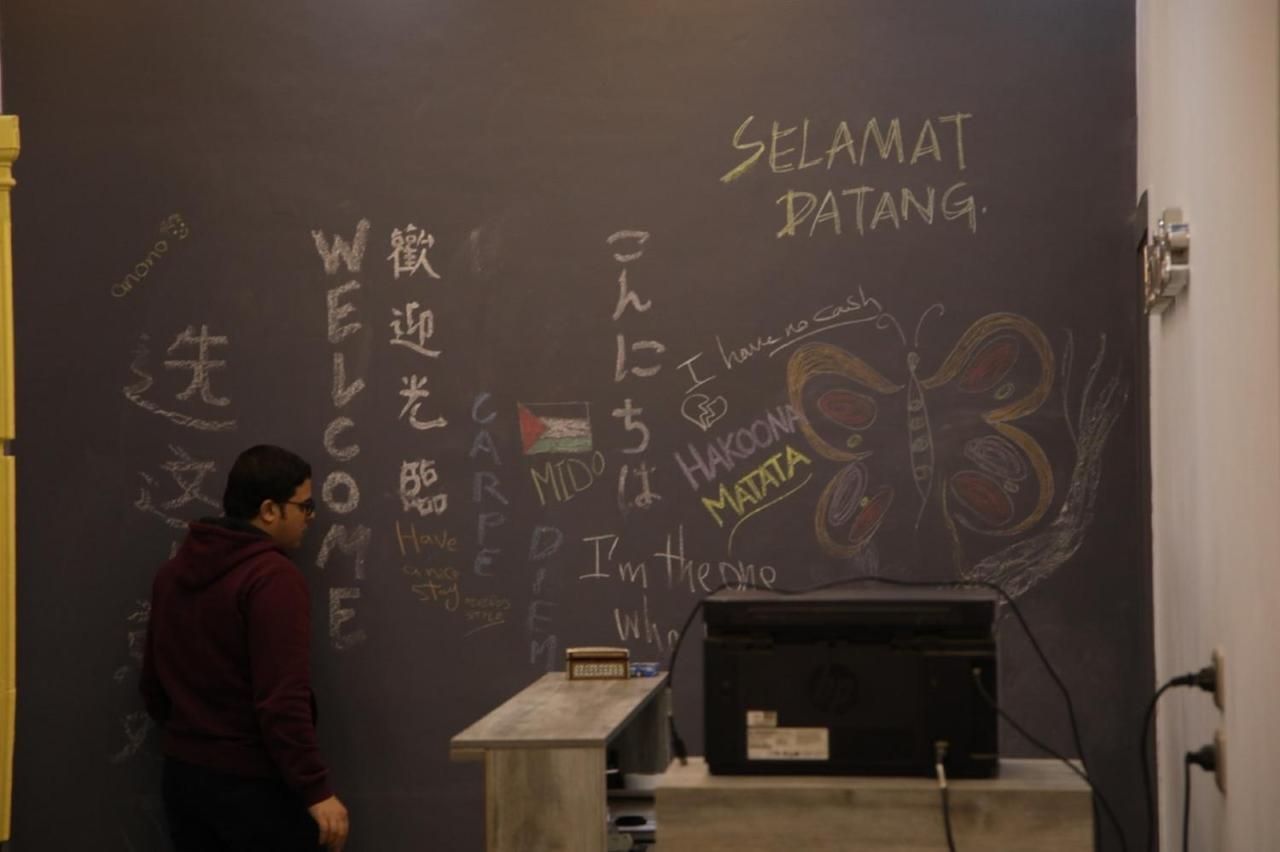 SELAMAT
DATANG.
anono
先
文
WELCOME
歡迎光臨
こんにちは
I have no cash
HAKOONA
MATATA
CARPE
DIEM
MIDO
Have
a nice
stay
I'm the one
who
hp